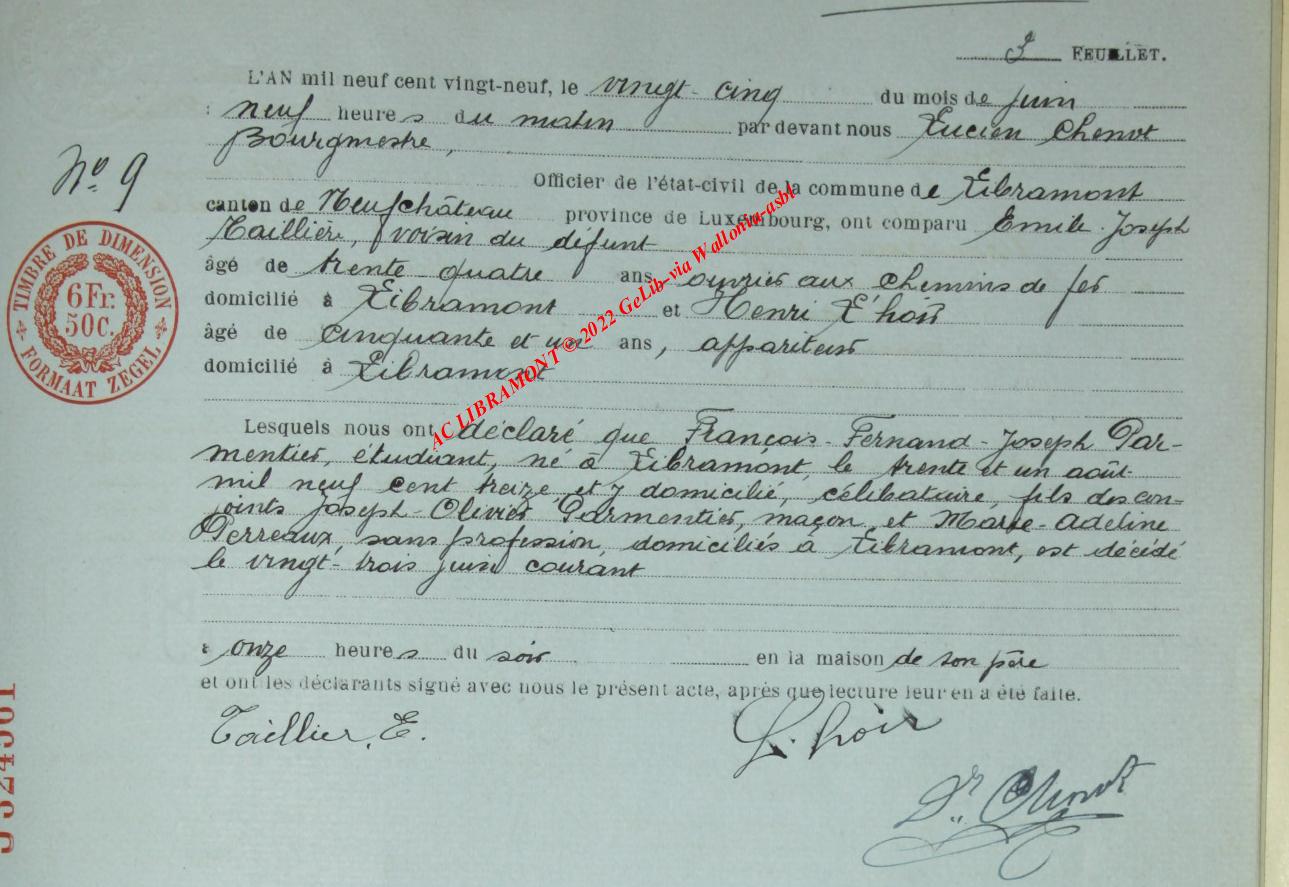 3 FEUILLET.
L'AN mil neuf cent vingt-neuf, le vingt-cinq du mois de juin
: neuf heures du matin par devant nous Lucien Chenot
Bourgmestre,
N° 9
Officier de l'état-civil de la commune de Libramont
canton de Neufchâteau province de Luxembourg, ont comparu Emile-Joseph
Taillière, voisin du difunt
âgé de trente quatre ans ouvrier aux chemins de fer
domicilié à Libramont et Henri L'hoir
âgé de cinquante et un ans, appariteur
domicilié à Libramont
TIMBRE DE DIMENSION
6Fr.
50c.
FORMAAT ZEGEL
AC LIBRAMONT©2022 GeLib-via Wallonia-asbl
Lesquels nous ont déclaré que François-Fernand-Joseph Par-
mentier, étudiant, né à Libramont, le trente et un août
mil neuf cent treize, et y domicilié, célibataire, fils des con-
joints Joseph-Olivier Parmentier, maçon, et Marie-Adeline
Perreaux, sans profession, domiciliés à Libramont, est décédé
le vingt-trois juin courant
à onze heures du soir en la maison de son père
et ont les déclarants signé avec nous le présent acte, après que lecture leur en a été faite.
Taillier, E.
L'hoir
Dr Chenot